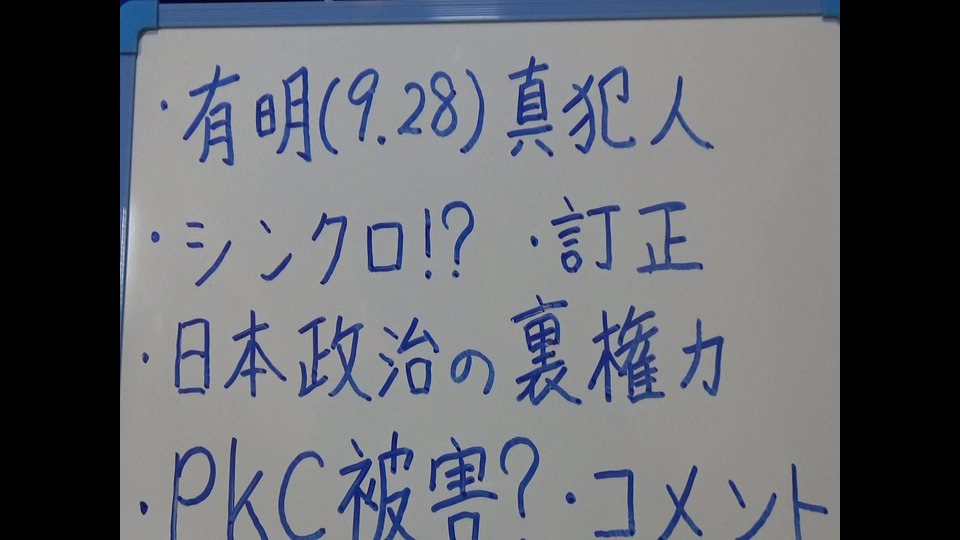 ・有明(9.28)真犯人
・シンクロ!? ・訂正
・日本政治の裏権力
・PKC被害?・コメント